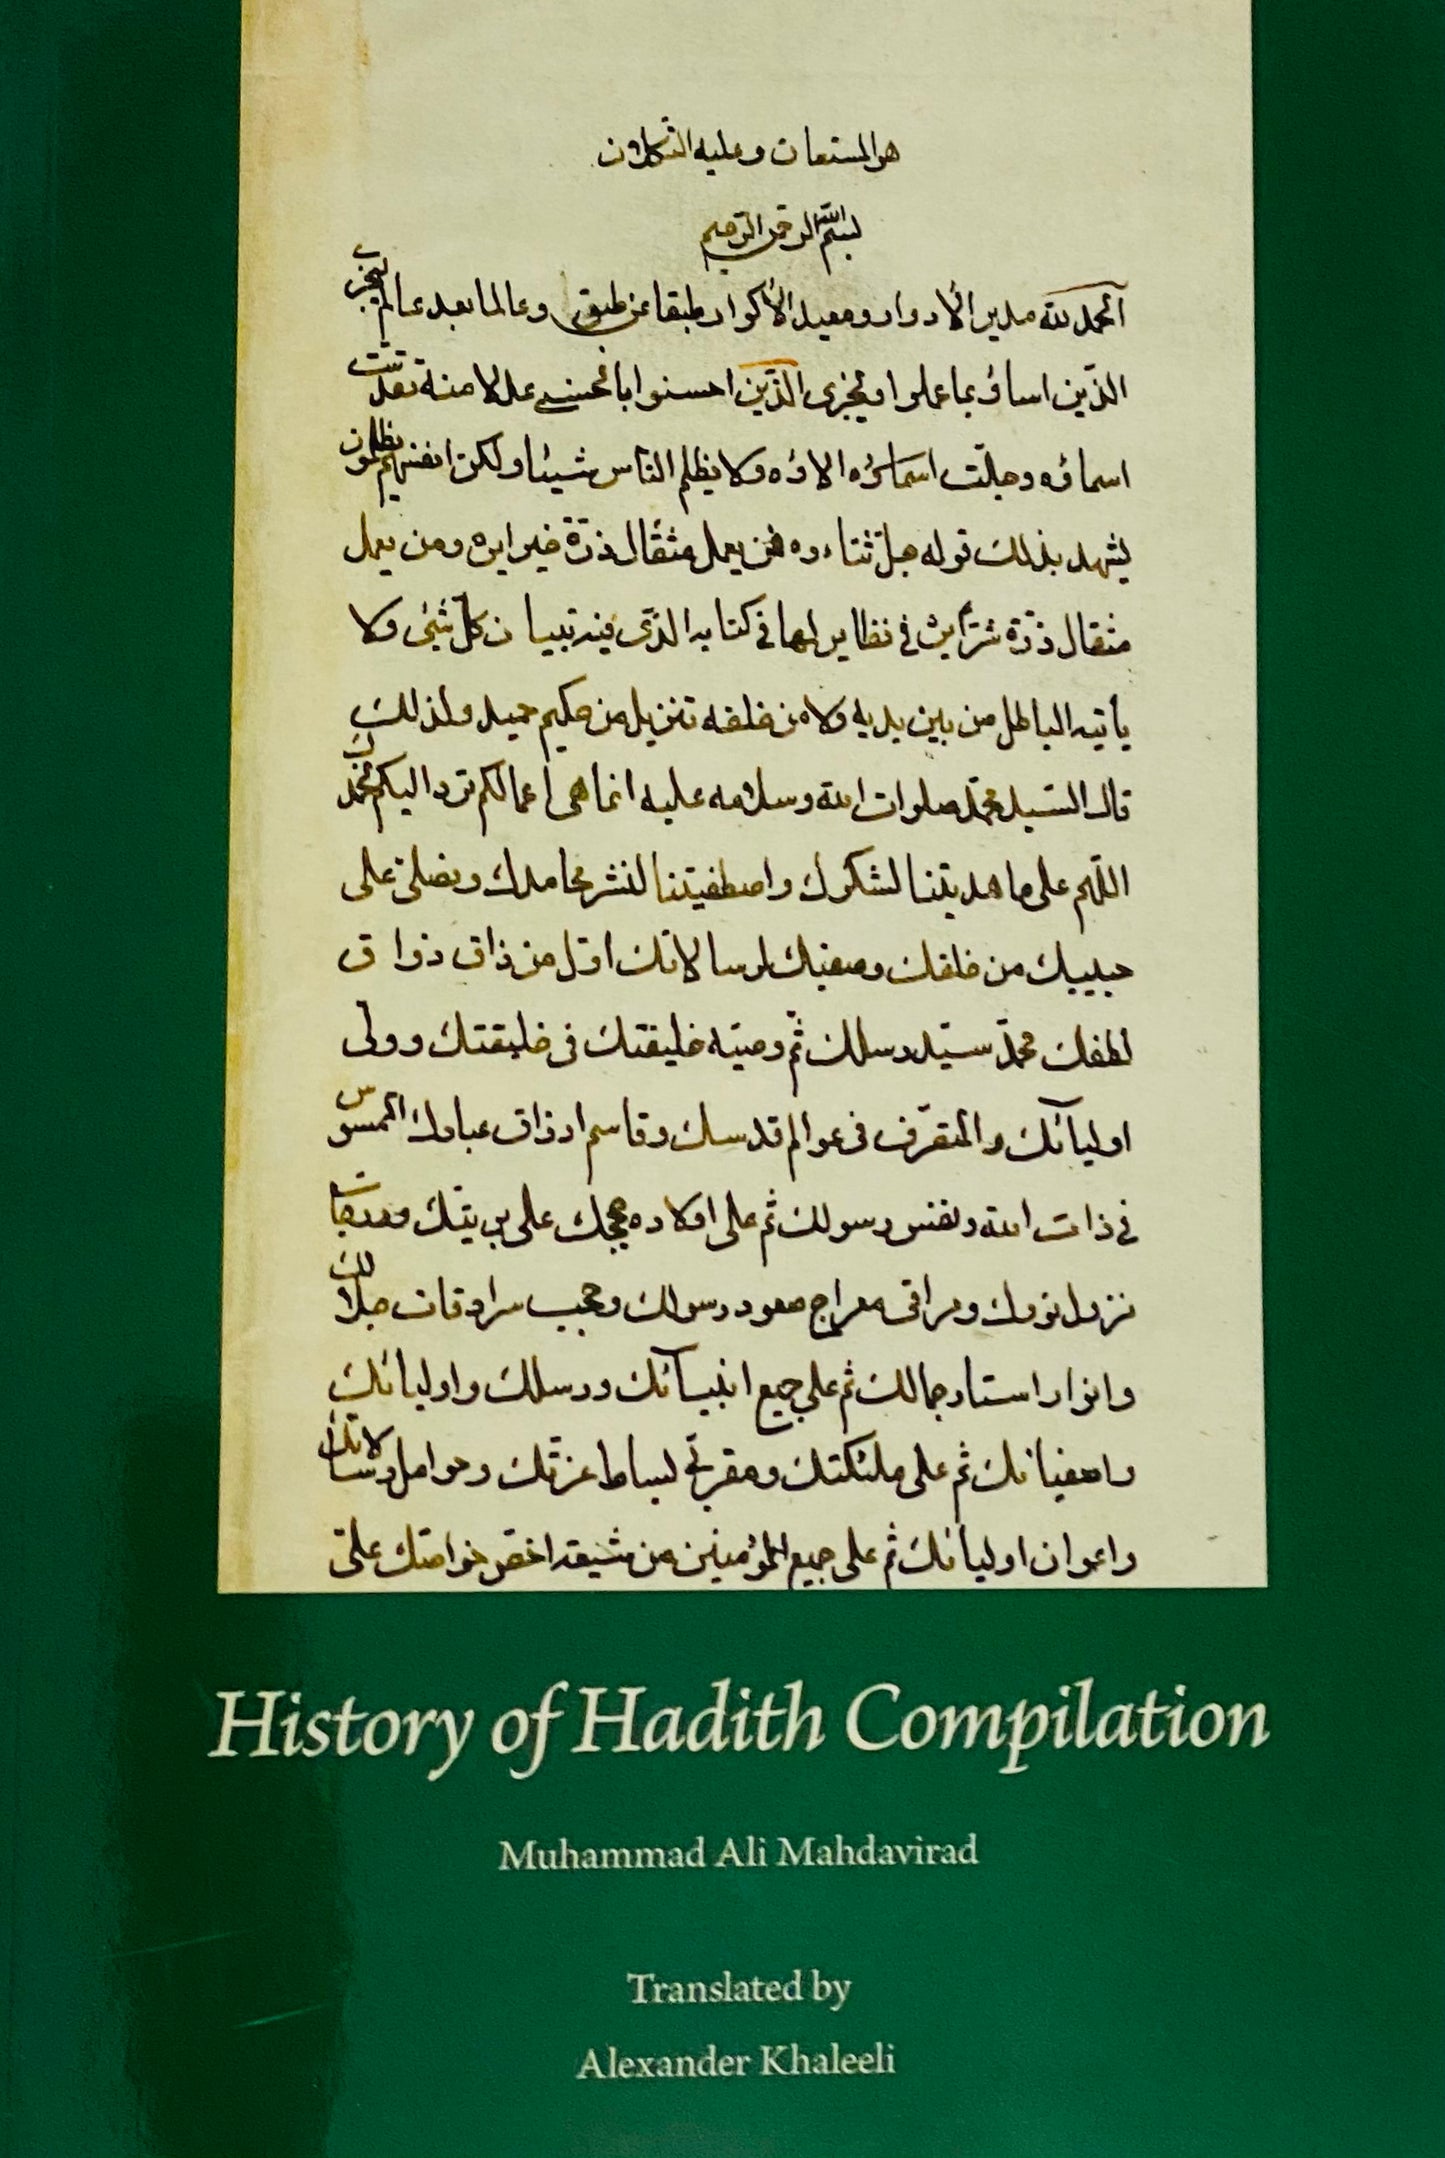 هو المستعان و عليه التكلان
بسم الله الرحمن الرحيم
الحمد لله مدير الادوار و معيد الأكوار طبقا عن طبق و عالما بعد عالم ليجزى
الذين اساؤ بما عملوا و يجزى الذين احسنوا بالحسنى عدلا منه تقدست
اسماؤه و جلت الاؤه ولا يظلم الناس شيئا ولكن انفسهم يظلمون
يشهد بذلك قوله جل ثناءوه فمن يعمل مثقال ذرة خيرا يره ومن يعمل
مثقال ذرة شرا يره في نظاير لها في كتابه الذي فيه تبيان كل شئ ولا
يأتيه الباطل من بين يديه ولا من خلفه تنزيل من حكيم حميد ولذلك
قال السيد محمد صلوات الله وسلامه عليه انما هي اعمالكم ترد اليكم نحمدك
اللهم على ما هديتنا لشكرك واصطفيتنا لنشر محامدك ونصلي على
حبيبك من خلقك وصفيك لرسالاتك اول من ذاق ذواق
لطفك محمد سيد رسلك ثم وصيه خليفتك في خليقتك وولى
اوليائك والمتصرف في عوالم قدسك وقاسم ارزاق عبادك الممسوس
في ذات الله ونفس رسولك ثم على اولاده حججك على بريتك
نزول نورك ومراقى معراج صعود رسولك وحجب سرادقات جلالك
وانوار استار جمالك ثم على جميع انبيائك ورسلك واوليائك
واصفيائك ثم على ملئكتك ومقربى بساط عزتك وحوامل رسالاتك
واعوان اوليائك ثم على جميع المؤمنين من شيعه اخص خواصك على
History of Hadith Compilation
Muhammad Ali Mahdavirad
Translated by
Alexander Khaleeli